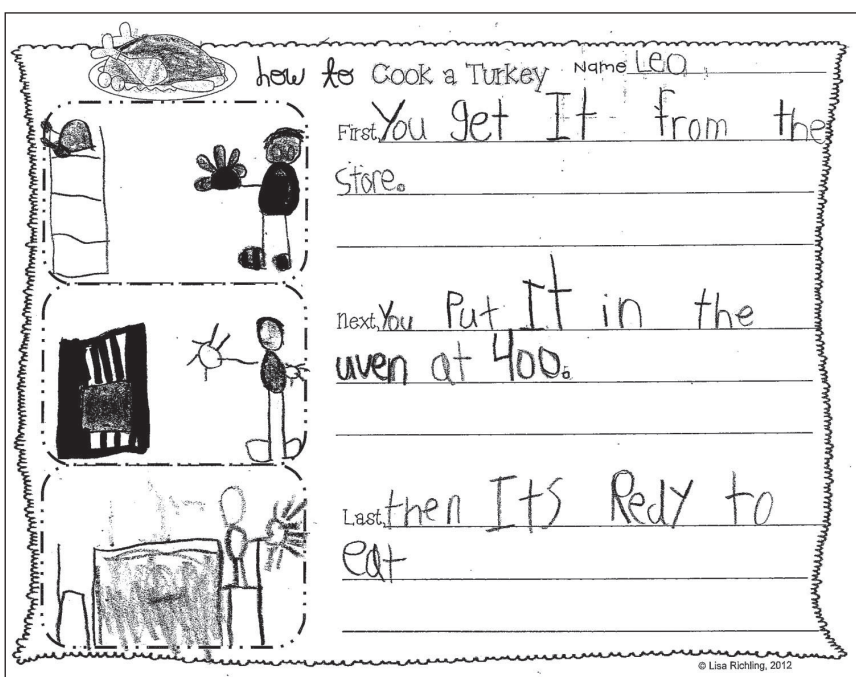 how to Cook a Turkey Name Leo
First, You get It from the
Store.
Next, You Put It in the
uven at 400.
Last, then ItS Redy to
eat
© Lisa Richling, 2012